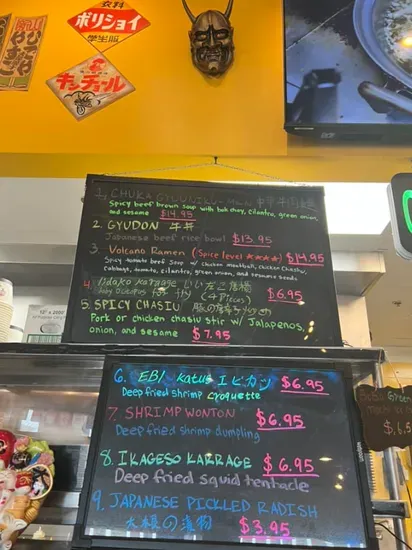 衣料
ポリショイ
学生服
キンチョール
1. CHUKA GYUUNIKU-MEN 中華牛肉麺
Spicy beef brown soup with bok choy, cilantro, green onion,
and sesame $14.95
2. GYUDON 牛丼
Japanese beef rice bowl $13.95
3. Volcano Ramen (Spice level ★★★★) $14.95
Spicy tomato beef soup w/ chicken meatball, chicken chashu,
Cabbage, tomato, cilantro, green onion, and sesame seeds
4. Iidako Karaage いいだこ唐揚
Baby octopus fry (4 pieces) $6.95
5. SPICY CHASIU
Pork or chicken chasiu stir w/ Jalapenos,
onion, and sesame $7.95
6. EBI Katus エビカツ $6.95
Deep fried shrimp croquette
7. SHRIMP WONTON $6.95
Deep fried shrimp dumpling
8. IKAGESO KARRAGE $6.95
Deep fried squid tentacle
9. JAPANESE PICKLED RADISH
大根の漬物 $3.95